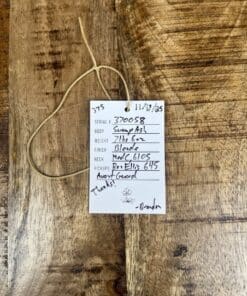 375 11/21/25
SERIAL # 370058
BODY Swamp Ash
WEIGHT 7lbs 5oz
FINISH Blonde
NECK Med C, 6105
PICKUPS Ron Ellis 64S
Avant Guard
Thanks!
-Brandon